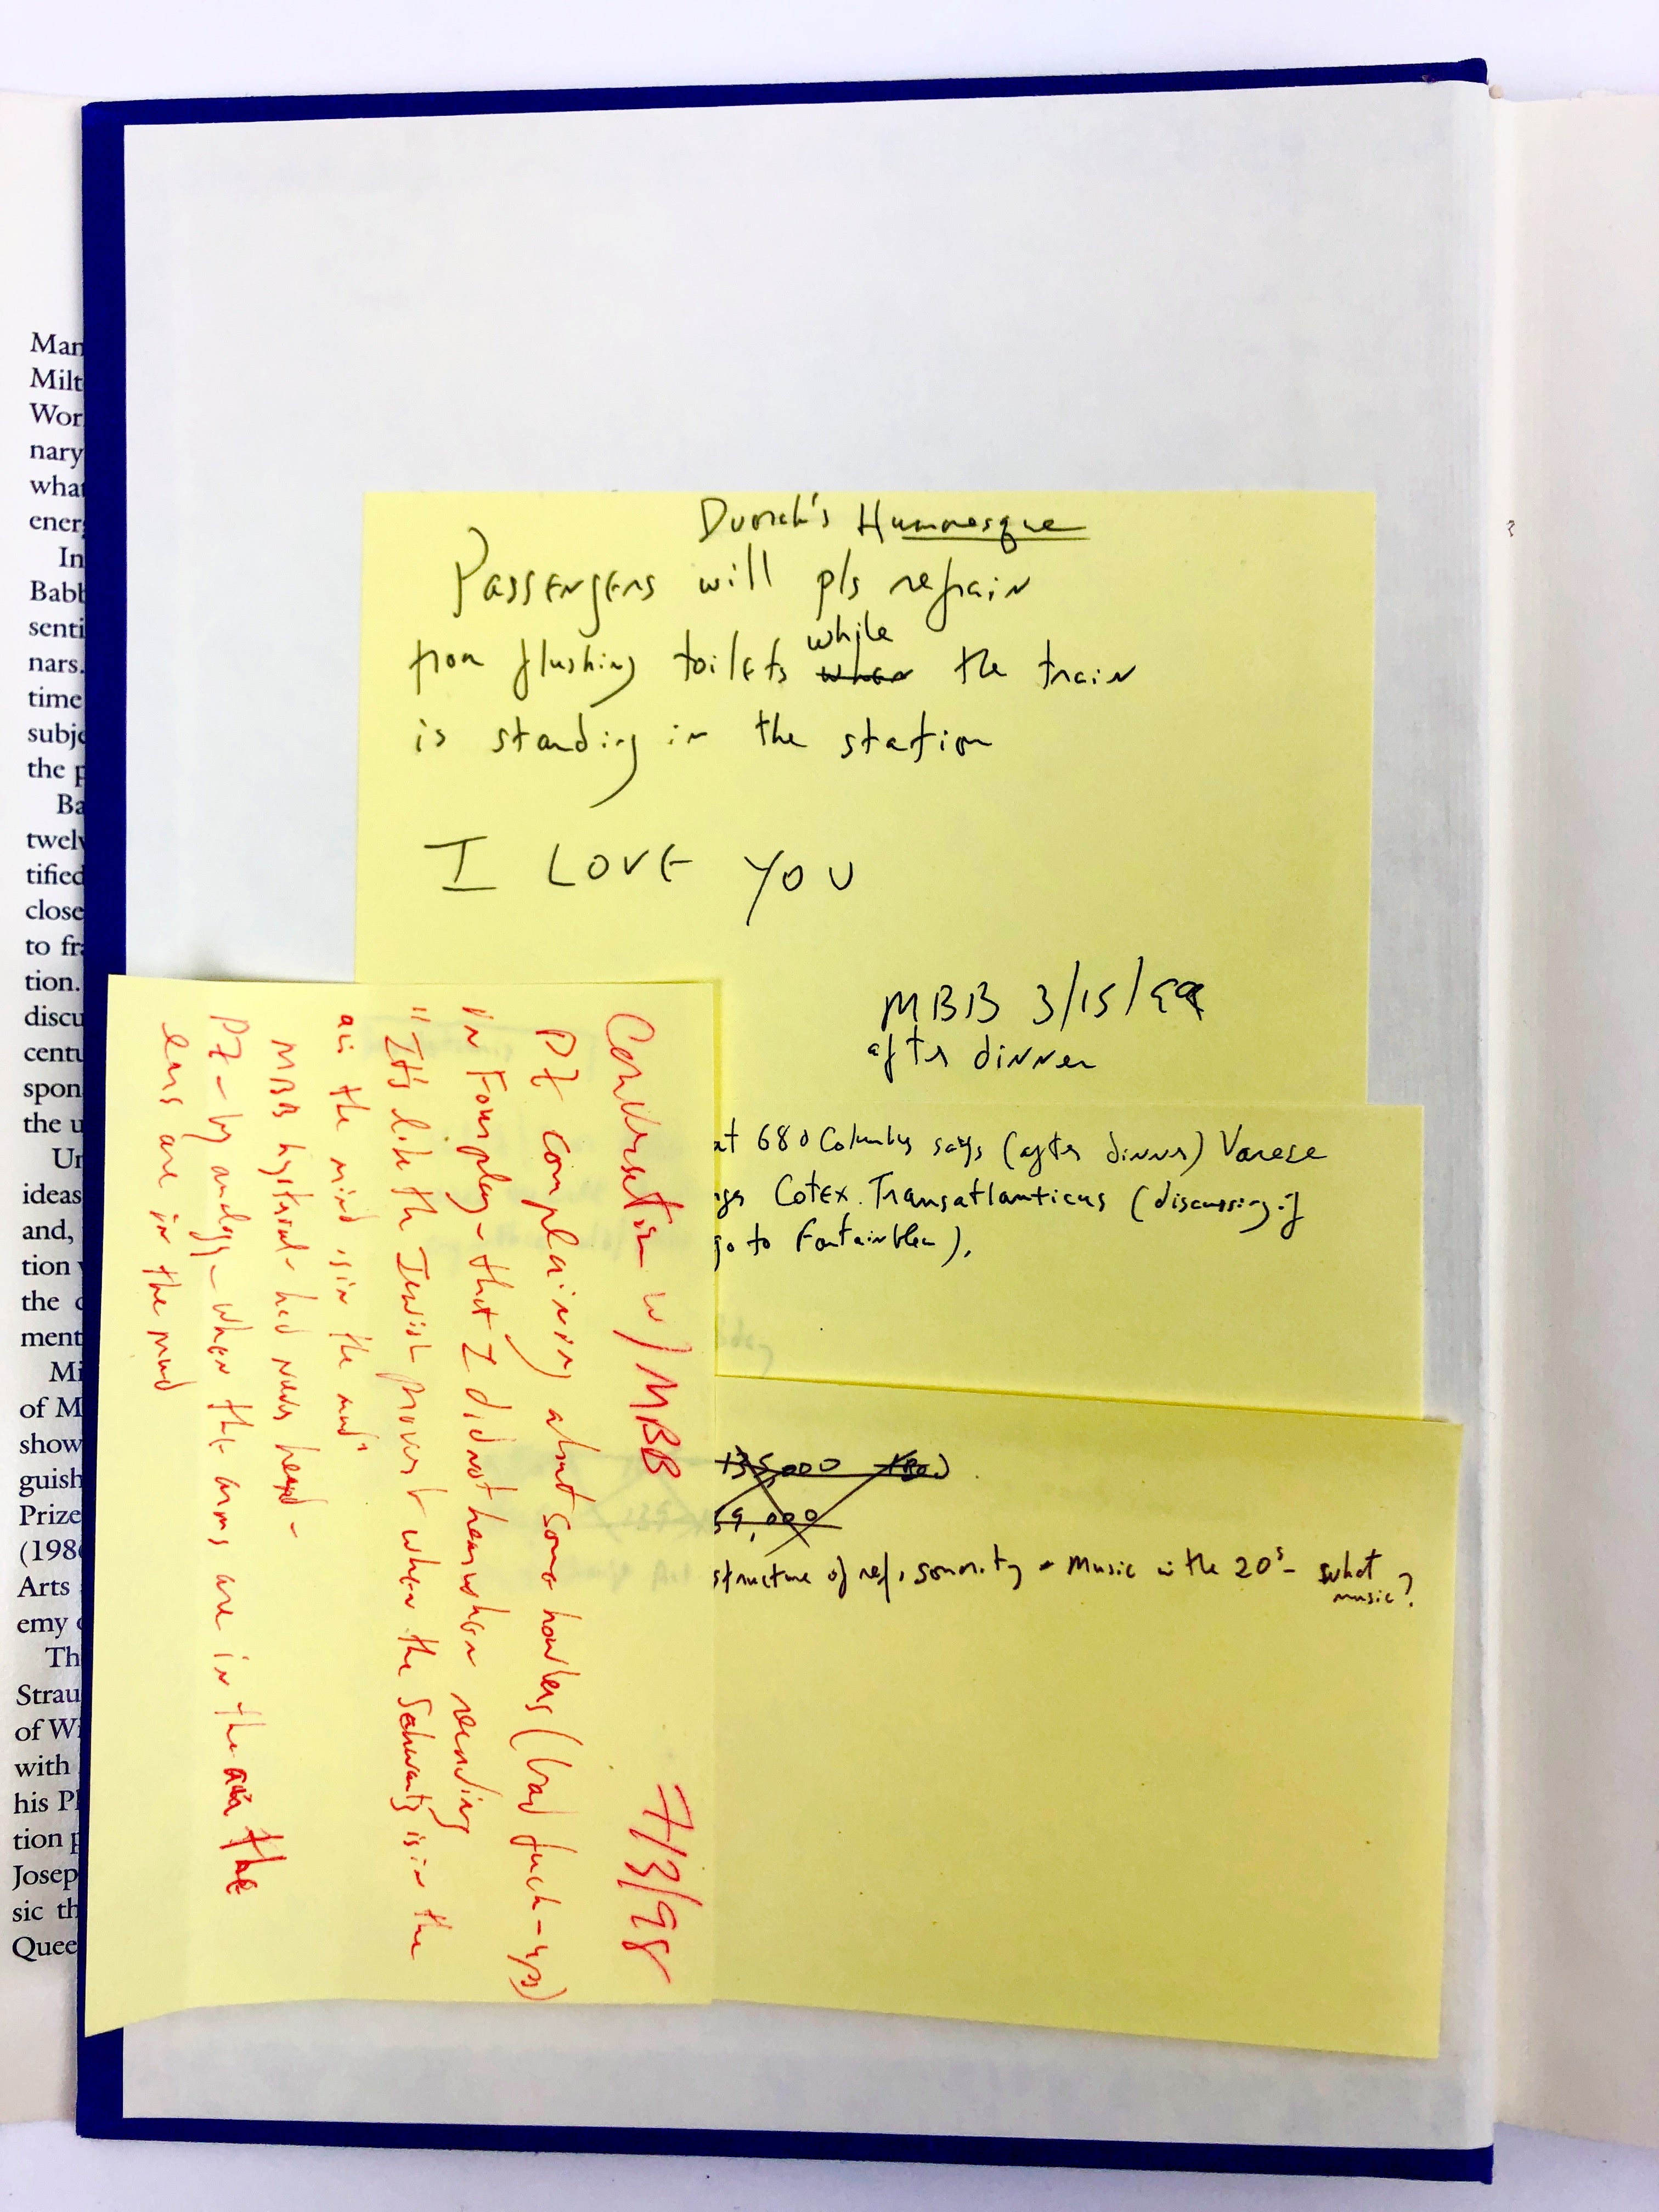 Man
Milt
Wor
nary
what
ener
In
Babb
senti
nars.
time
subje
the p
Ba
twelv
tified
close
to fra
tion.
discu
centu
spon
the u
Un
ideas
and,
tion
the c
ment
Mi
of M
show
guish
Prize
(198
Arts
emy
Th
Strau
of Wi
with
his Pl
tion p
Josep
sic th
Quee
Dvorak's Humoresque
Passengers will pls refrain
from flushing toilets when while the train
is standing in the station
I LOVE YOU
MBB 3/15/99
after dinner
at 680 Columbus says (after dinner) Varese
Cotex Transatlanticus (discussing if
go to Fontainbleu).
135,000
9,000
structure of ref, sonority - Music in the 20s - what
music?
Conversation w/ MBB 7/3/98
PZ complaining about some howlers (bad fuck-ups)
in Fourplay - that I did not hear when reading
"It's like the Jewish proverb when the Schwantz is in the
air the mind is in the mud"
MBB hysterical - had never heard -
PZ - by analogy - when the arms are in the air the
ears are in the mud